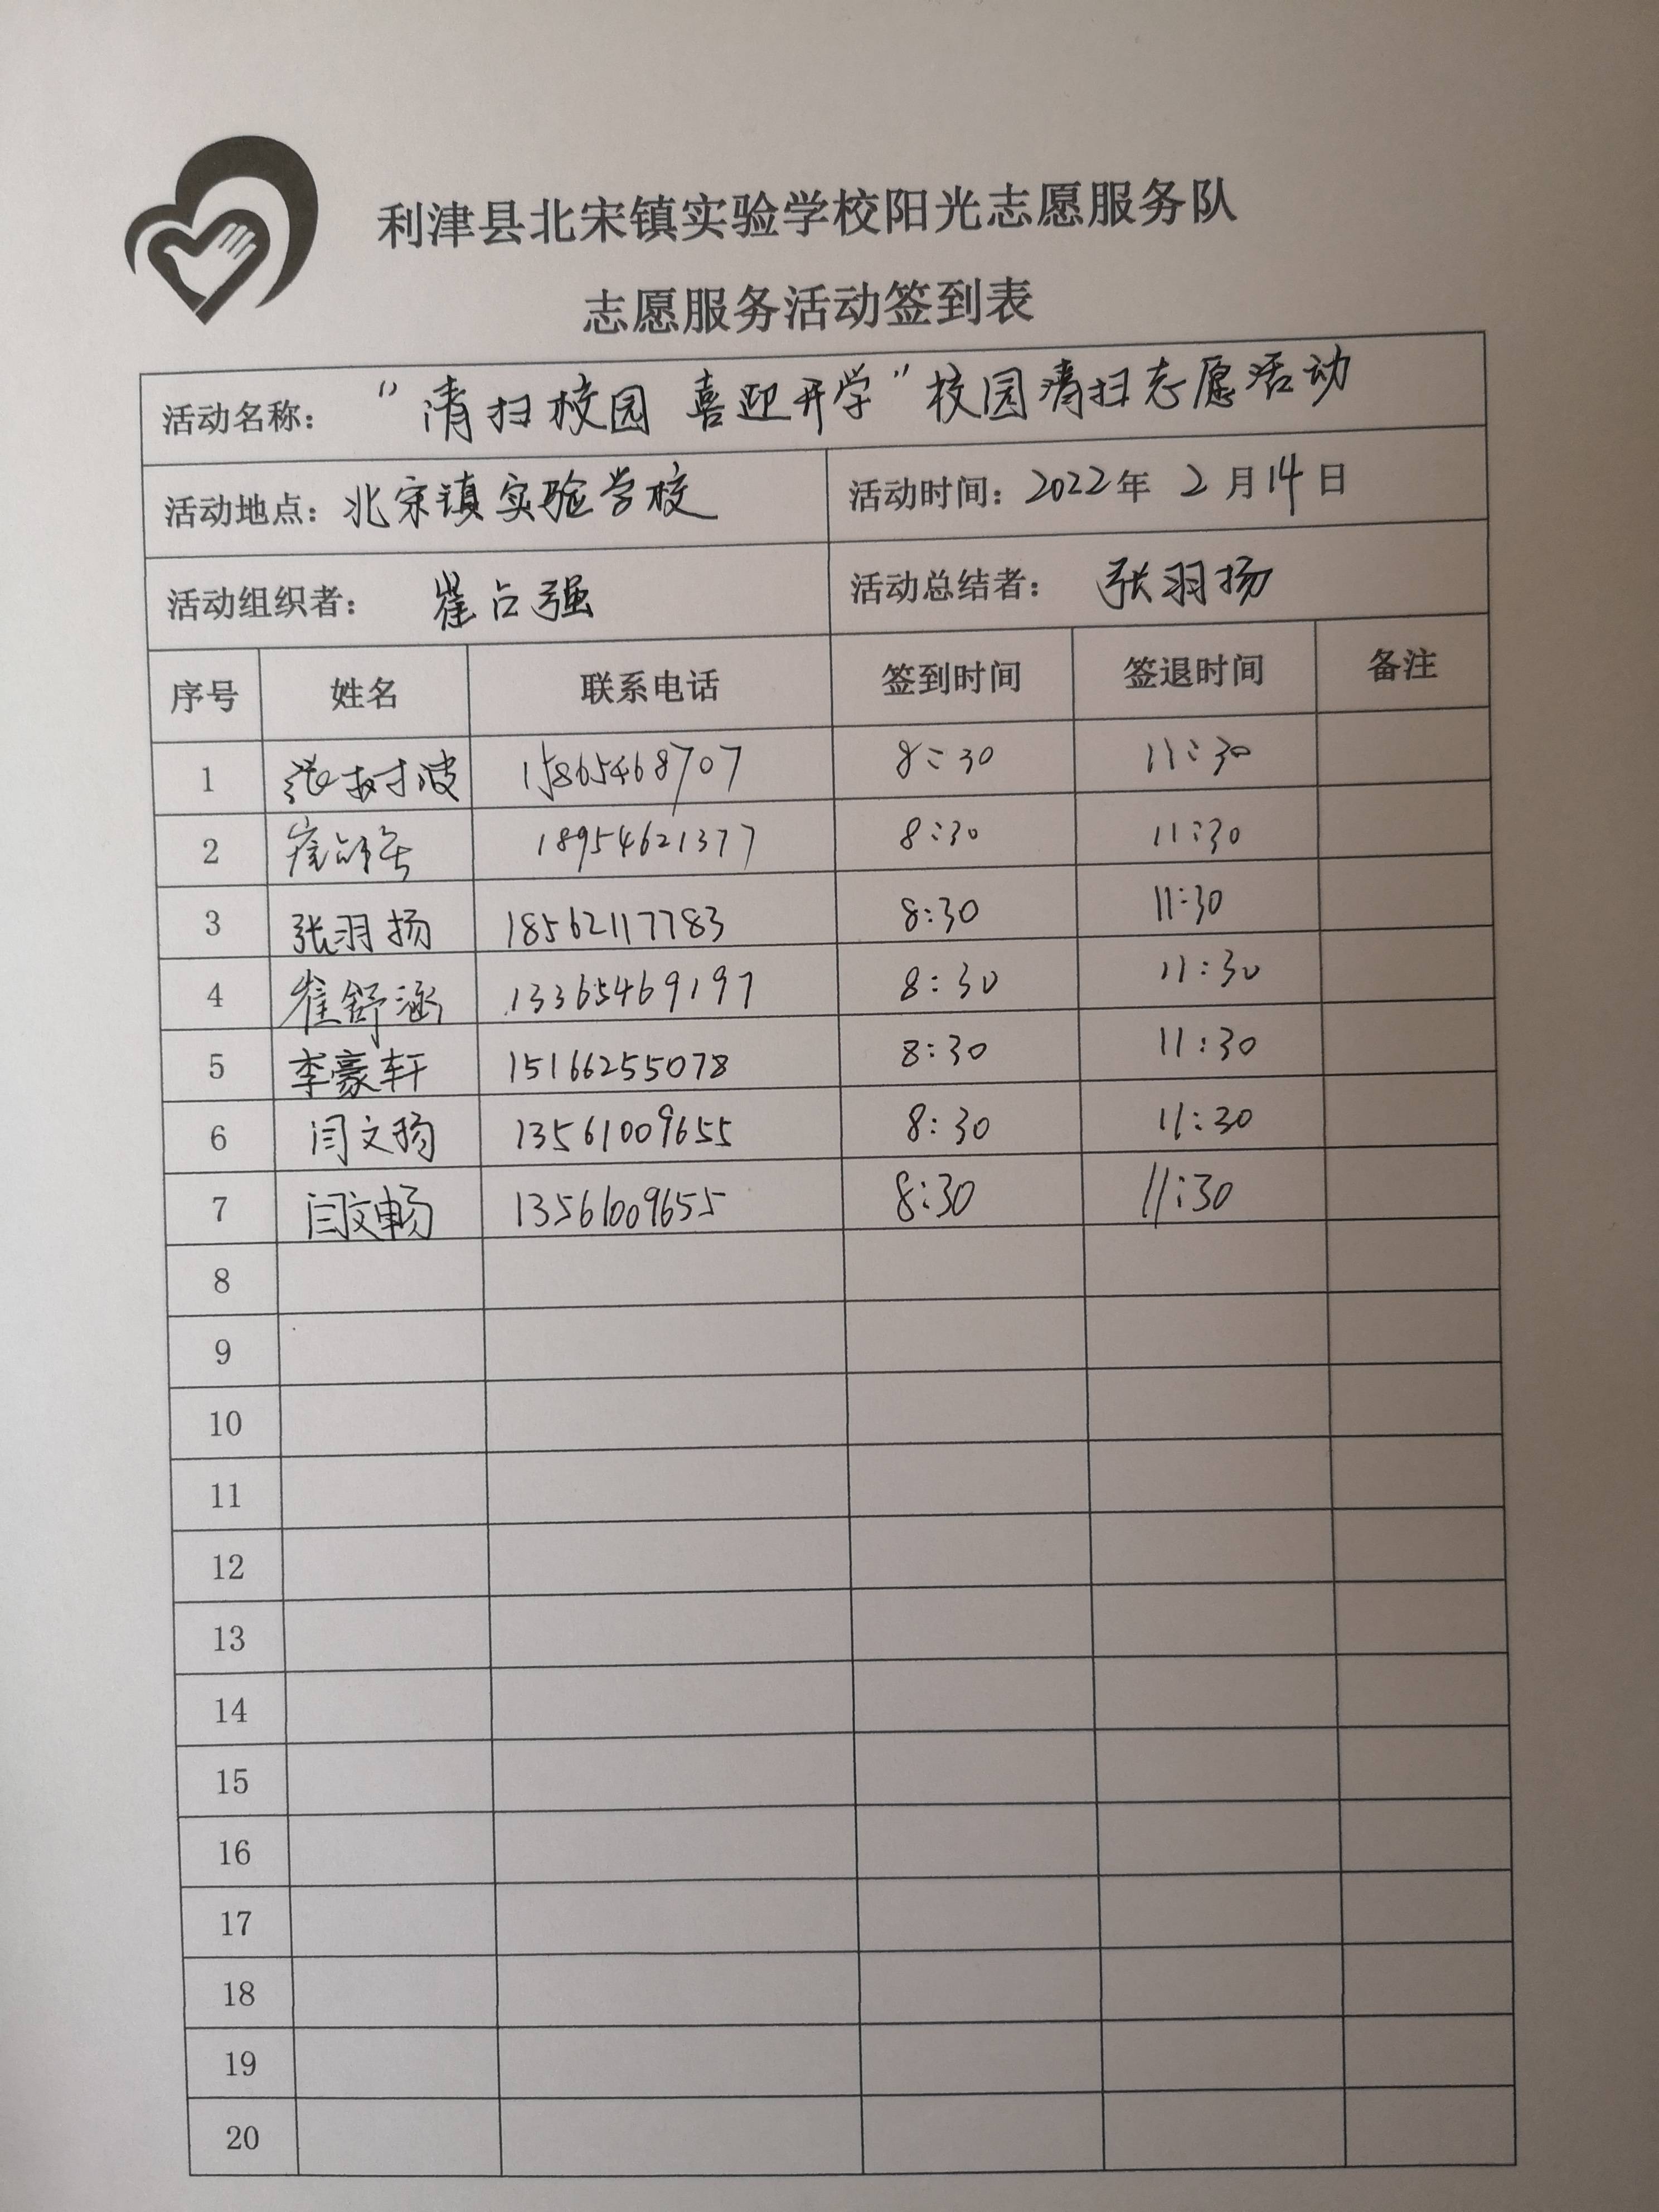 利津县北宋镇实验学校阳光志愿服务队
志愿服务活动签到表
活动名称： “清扫校园 喜迎开学”校园清扫志愿活动
活动地点：北宋镇实验学校 活动时间：2022年 2月14日
活动组织者： 崔占强 活动总结者： 张羽扬
序号 姓名 联系电话 签到时间 签退时间 备注
1 张树波 15865468707 8:30 11:30
2 崔占强 18954621377 8:30 11:30
3 张羽扬 18562117783 8:30 11:30
4 崔舒涵 13365469197 8:30 11:30
5 李豪轩 15166255078 8:30 11:30
6 闫文扬 13561009655 8:30 11:30
7 闫文畅 13561009655 8:30 11:30
8
9
10
11
12
13
14
15
16
17
18
19
20